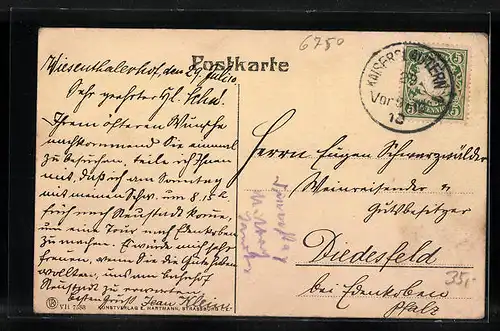 6750
Postkarte
Wiesenthalerhof, den 29 Juli 10
Sehr geehrter Hl. Schw.
Ihrem öfteren Wunsche
nachkommend Sie einmal
zu besuchen, teile ich Ihnen
mit, daß ich am Sonntag
mit meinen Schw. um 8.15
früh nach Neustadt kome,
um eine Tour nach Edenkoben
zu machen. Es würde mich sehr
freuen, wenn Sie die Güte haben
wollten, uns am Bahnhof
Neustadt zu erwarten.
besten Gruß Jean Klein
KAISERSLAUTERN
Vor
10
5
Herrn Eugen Schwarzwälder
Weinreisender &
Gutsbesitzer
Diedesfeld
bei Edenkoben
Pfalz
35,-
VII 7588
KUNSTVERLAG E. HARTMANN, STRASSBURG I. E.